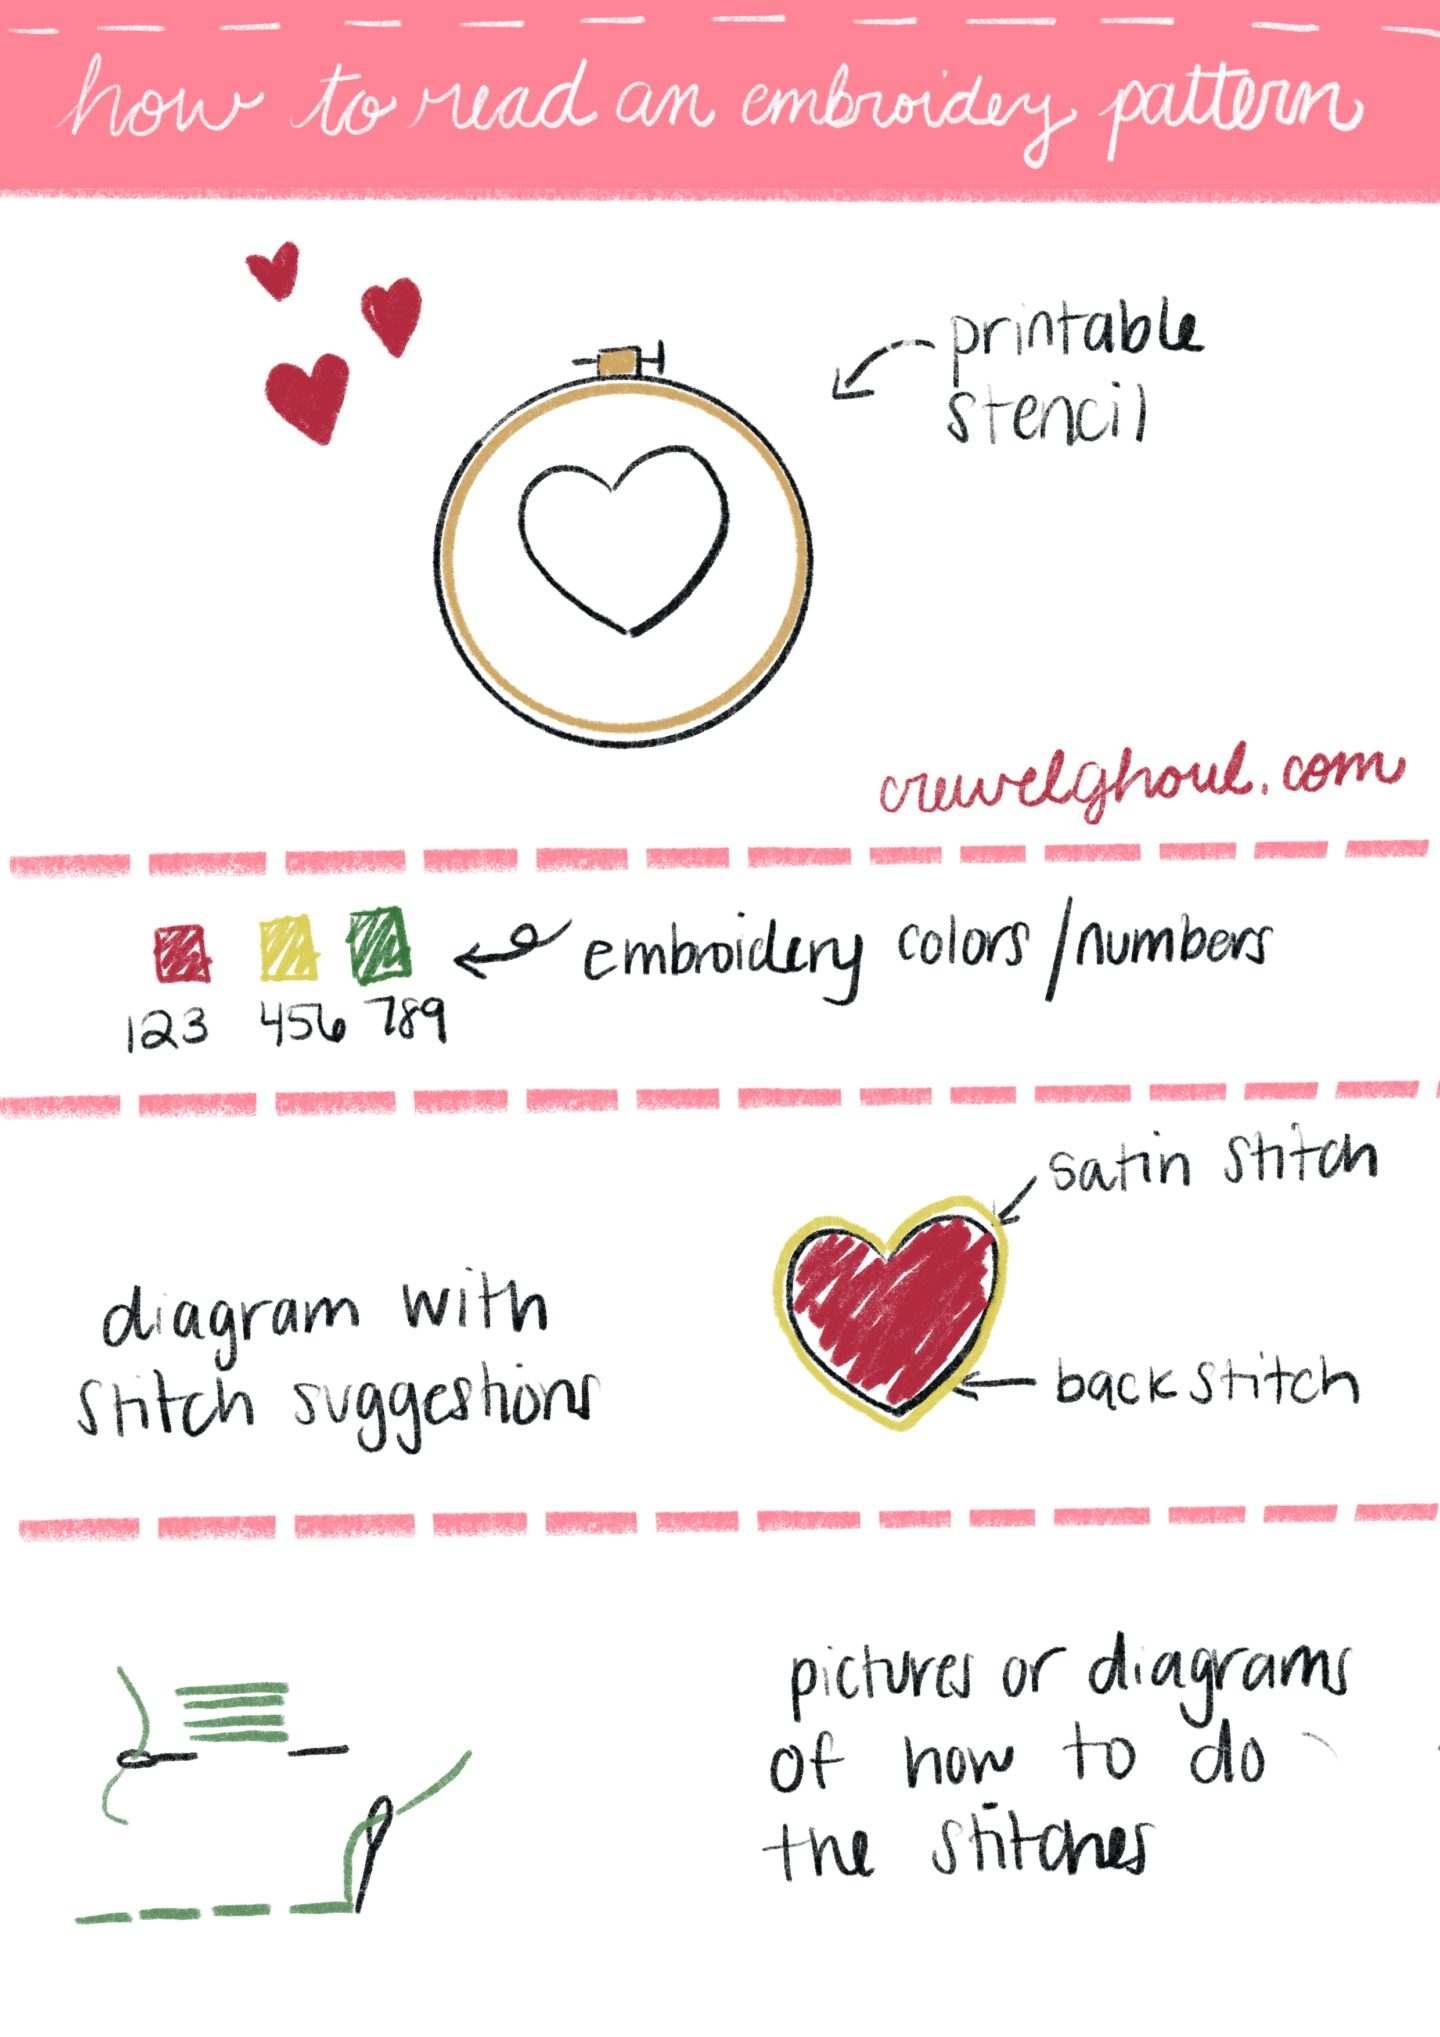 how to read an embroidey pattern
printable
stencil
crewelghoul.com
embroidery colors/numbers
123 456 789
satin stitch
diagram with
stitch suggestions
backstitch
pictures or diagrams
of how to do
the stitches